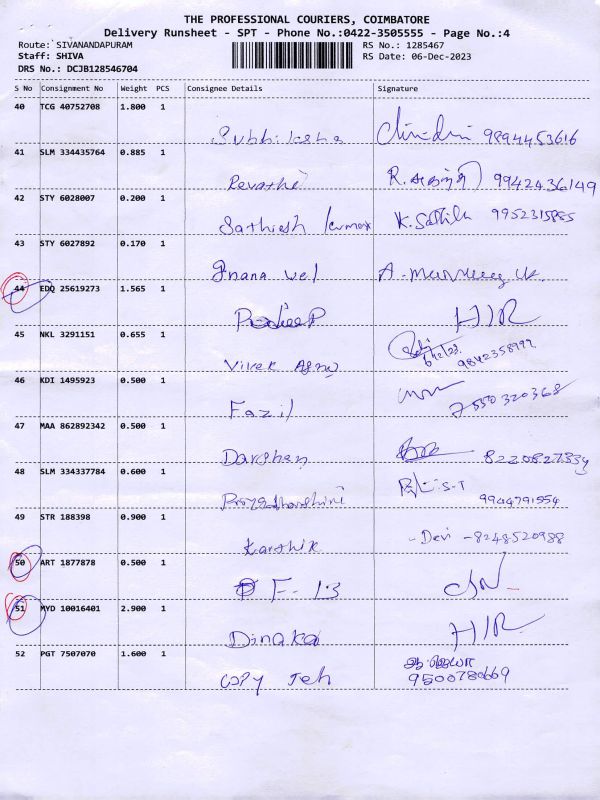 THE PROFESSIONAL COURIERS, COIMBATORE
Delivery Runsheet - SPT - Phone No.:0422-3505555 - Page No.:4
Route: SIVANANDAPURAM RS No.: 1285467
Staff: SHIVA RS Date: 06-Dec-2023
DRS No.: DCJB128546704
S No Consignment No Weight PCS Consignee Details Signature
40 TCG 40752708 1.800 1
Subhiksha 9894453616
41 SLM 334435764 0.885 1
Revathi R. 9942436149
42 STY 6028007 0.200 1
Sathiesh kumar K. 9952315885
43 STY 6027892 0.170 1
Gnana vel A.
44 EDQ 25619273 1.565 1
Pradeep H/R
45 NKL 3291151 0.655 1
6/12/23
Vivek 9842358997
46 KDI 1495923 0.500 1
Fazil 7550320368
47 MAA 862892342 0.500 1
Darshan 8220827334
48 SLM 334337784 0.600 1
Priyadharshini S-T
9944791554
49 STR 188398 0.900 1
Karthik Devi -8248520988
50 ART 1877878 0.500 1
F-13
51 MYD 10016401 2.900 1
Dinaka H/R
52 PGT 7507070 1.600 1
copy Teh 9500780669